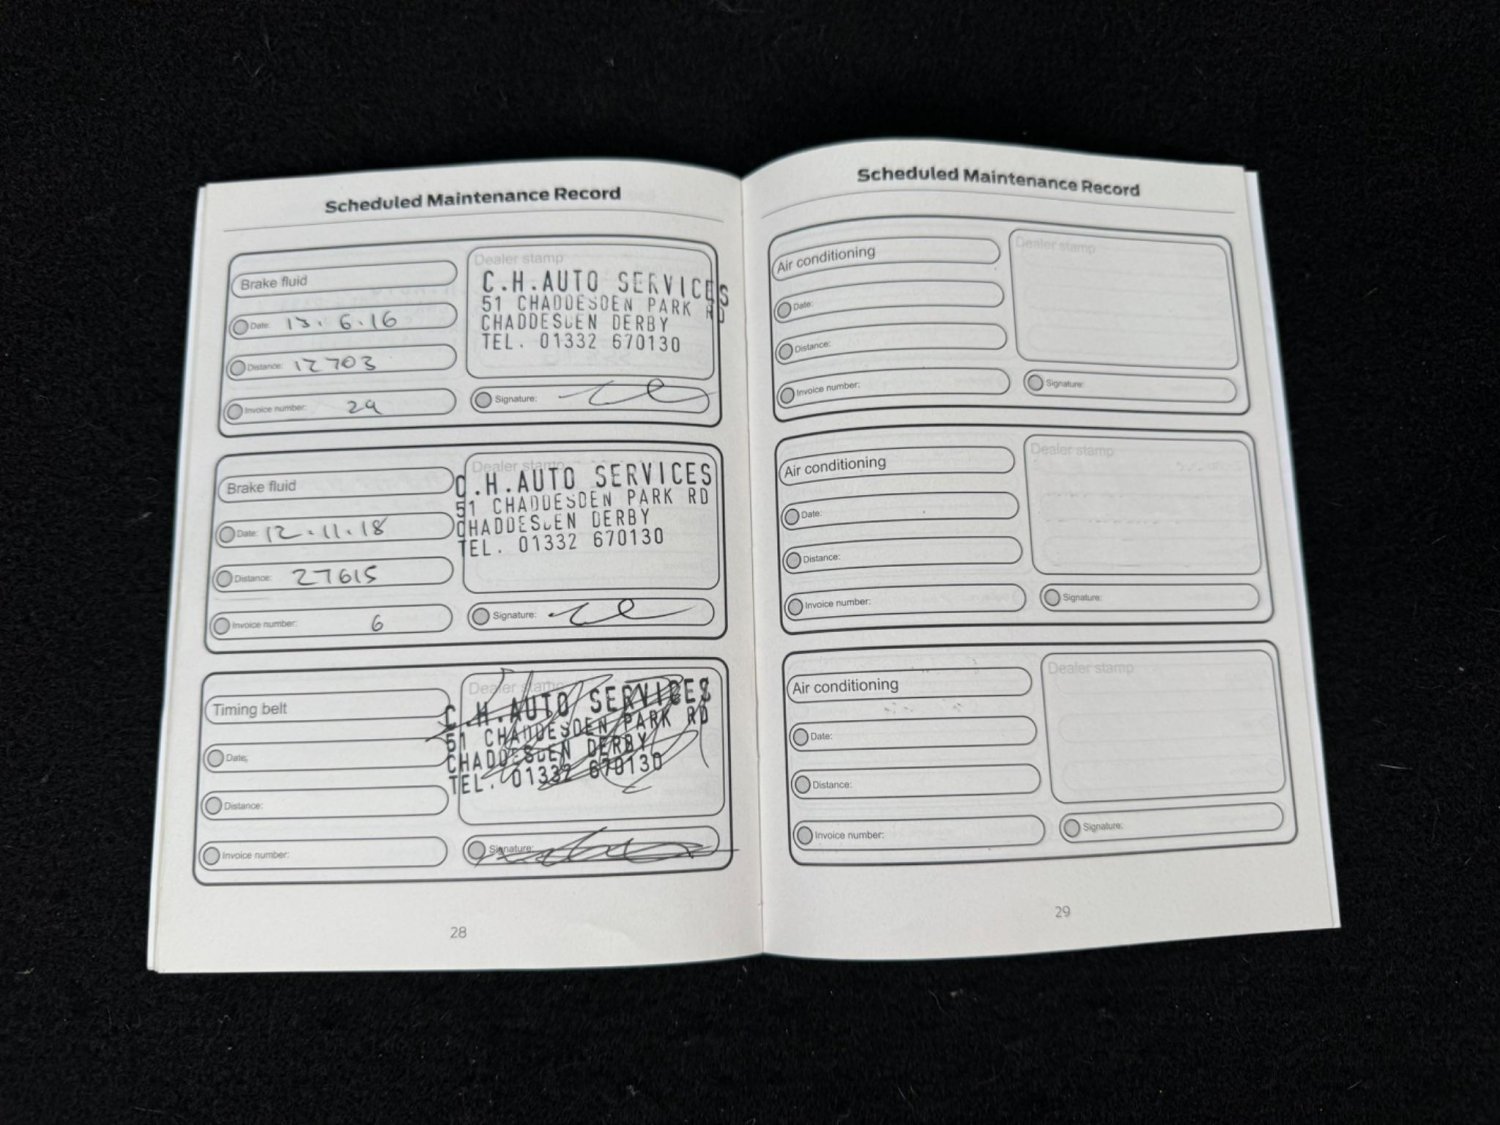 Scheduled Maintenance Record
Brake fluid
Date: 13.6.16
Distance: 12703
Invoice number: 29
Dealer stamp
C.H.AUTO SERVICES
51 CHADDESDEN PARK RD
CHADDESDEN DERBY
TEL. 01332 670130
Signature:
Brake fluid
Date: 12.11.18
Distance: 27615
Invoice number: 6
Dealer stamp
C.H.AUTO SERVICES
51 CHADDESDEN PARK RD
CHADDESDEN DERBY
TEL. 01332 670130
Signature:
Timing belt
Date:
Distance:
Invoice number:
Dealer stamp
C.H.AUTO SERVICES
51 CHADDESDEN PARK RD
CHADDESDEN DERBY
TEL. 01332 670130
Signature:
28
Scheduled Maintenance Record
Air conditioning
Date:
Distance:
Invoice number:
Dealer stamp
Signature:
Air conditioning
Date:
Distance:
Invoice number:
Dealer stamp
Signature:
Air conditioning
Date:
Distance:
Invoice number:
Dealer stamp
Signature:
29